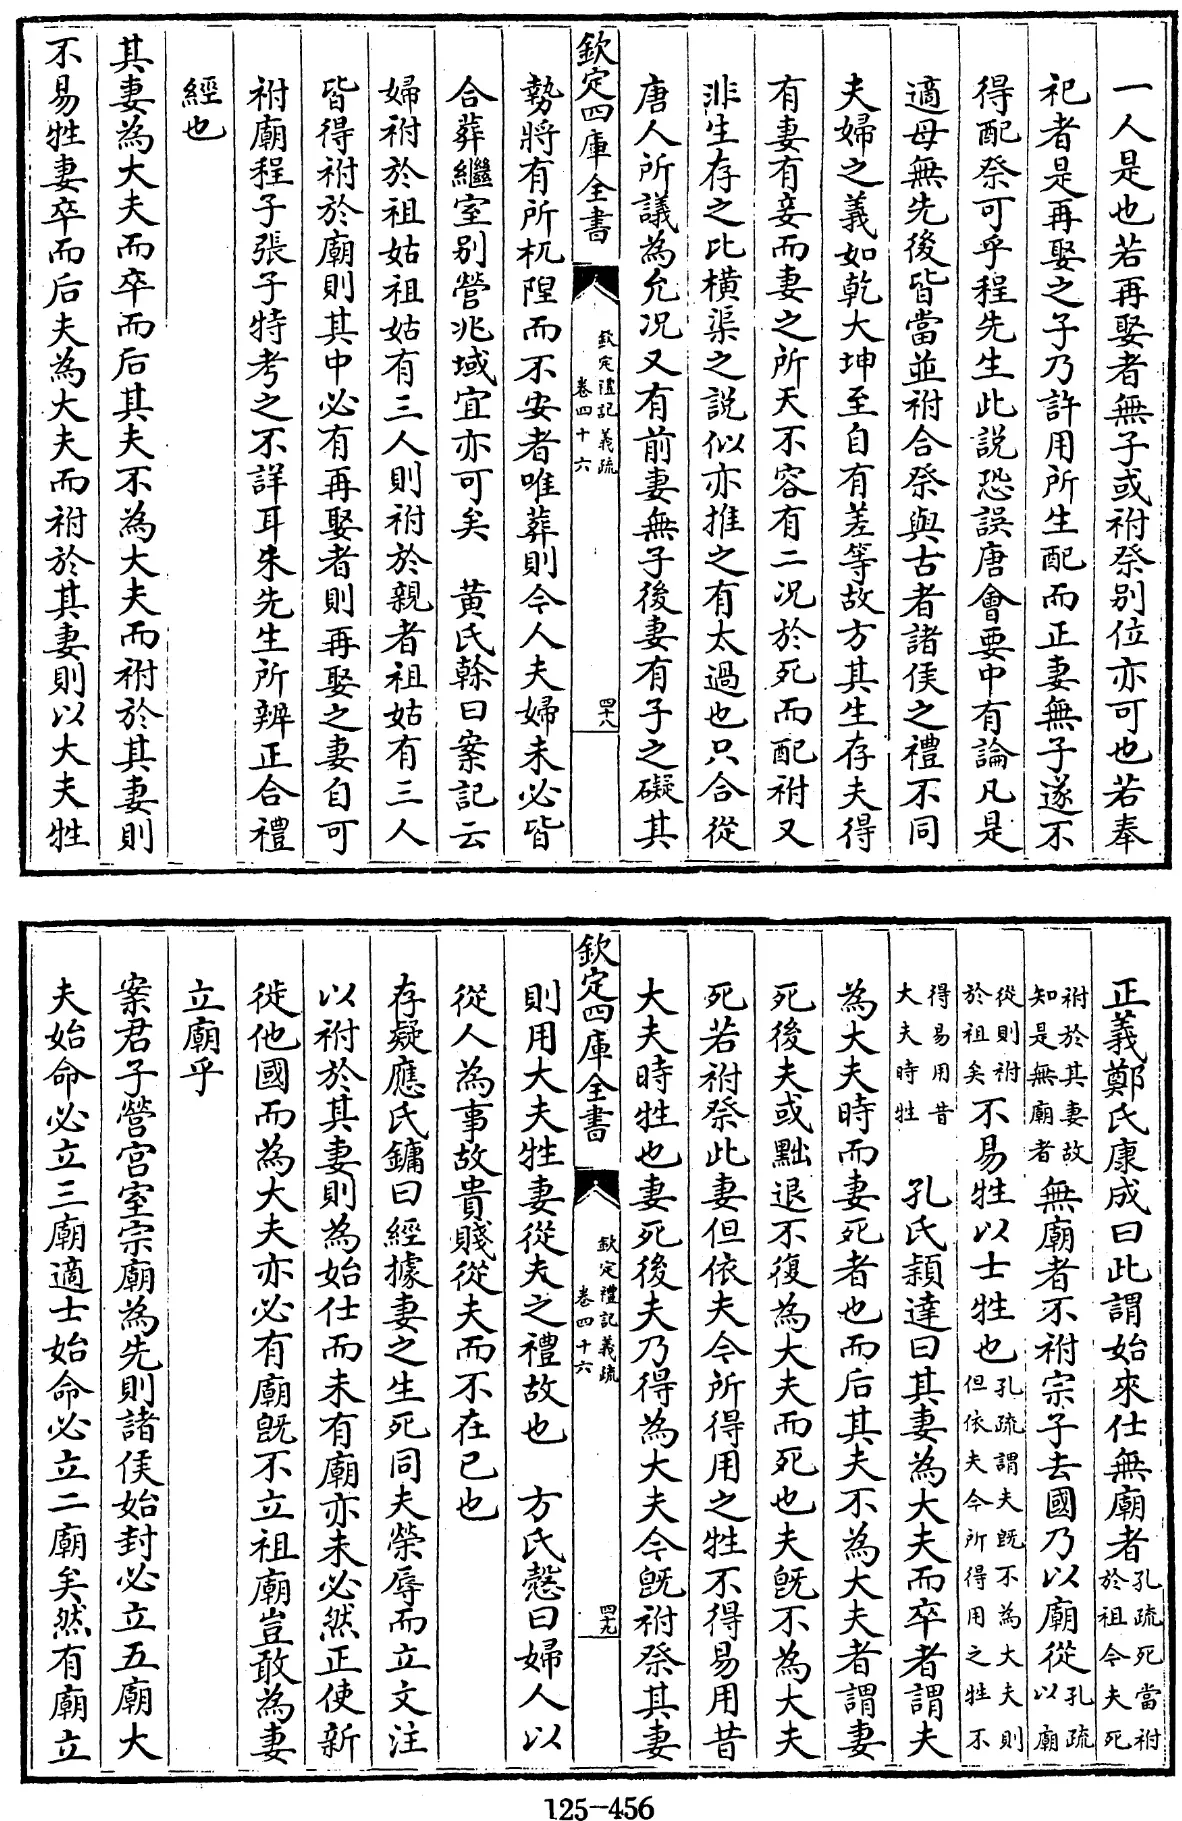 一人是也若再娶者無子或祔祭别位亦可也若奉
祀者是再娶之子乃許用所生配而正妻無子遂不
得配祭可乎程先生此説恐誤唐會要中有論凡是
適母無先後皆當並祔合祭與古者諸侯之禮不同
夫婦之義如乾大坤至自有差等故方其生存夫得
有妻有妾而妻之所天不容有二况於死而配祔又
非生存之比横渠之説似亦推之有太過也只合從
唐人所議為允况又有前妻無子後妻有子之礙其
欽定四庫全書
欽定禮記義疏
卷四十六
四十八
勢將有所杌隉而不安者唯葬則今人夫婦未必皆
合葬繼室别營兆域宜亦可矣 黄氏榦曰案記云
婦祔於祖姑祖姑有三人則祔於親者祖姑有三人
皆得祔於廟則其中必有再娶者則再娶之妻自可
祔廟程子張子特考之不詳耳朱先生所辨正合禮
經也
其妻為大夫而卒而后其夫不為大夫而祔於其妻則
不易牲妻卒而后夫為大夫而祔於其妻則以大夫牲
正義鄭氏康成曰此謂始來仕無廟者孔疏死當祔於祖今夫死
祔於其妻故知是無廟者無廟者不祔宗子去國乃以廟從孔疏以廟
從則祔於祖矣不易牲以士牲也孔疏謂夫既不為大夫則但依夫今所得用之牲不
得易用昔大夫時牲 孔氏穎達曰其妻為大夫而卒者謂夫
為大夫時而妻死者也而后其夫不為大夫者謂妻
死後夫或黜退不復為大夫而死也夫既不為大夫
死若祔祭此妻但依夫今所得用之牲不得易用昔
大夫時牲也妻死後夫乃得為大夫今既祔祭其妻
欽定四庫全書
欽定禮記義疏
卷四十六
四十九
則用大夫牲妻從夫之禮故也 方氏慤曰婦人以
從人為事故貴賤從夫而不在已也
存疑應氏鏞曰經據妻之生死同夫榮辱而立文注
以祔於其妻則為始仕而未有廟亦未必然正使新
徙他國而為大夫亦必有廟既不立祖廟豈敢為妻
立廟乎
案君子營宫室宗廟為先則諸侯始封必立五廟大
夫始命必立三廟適士始命必立二廟矣然有廟立
125-456